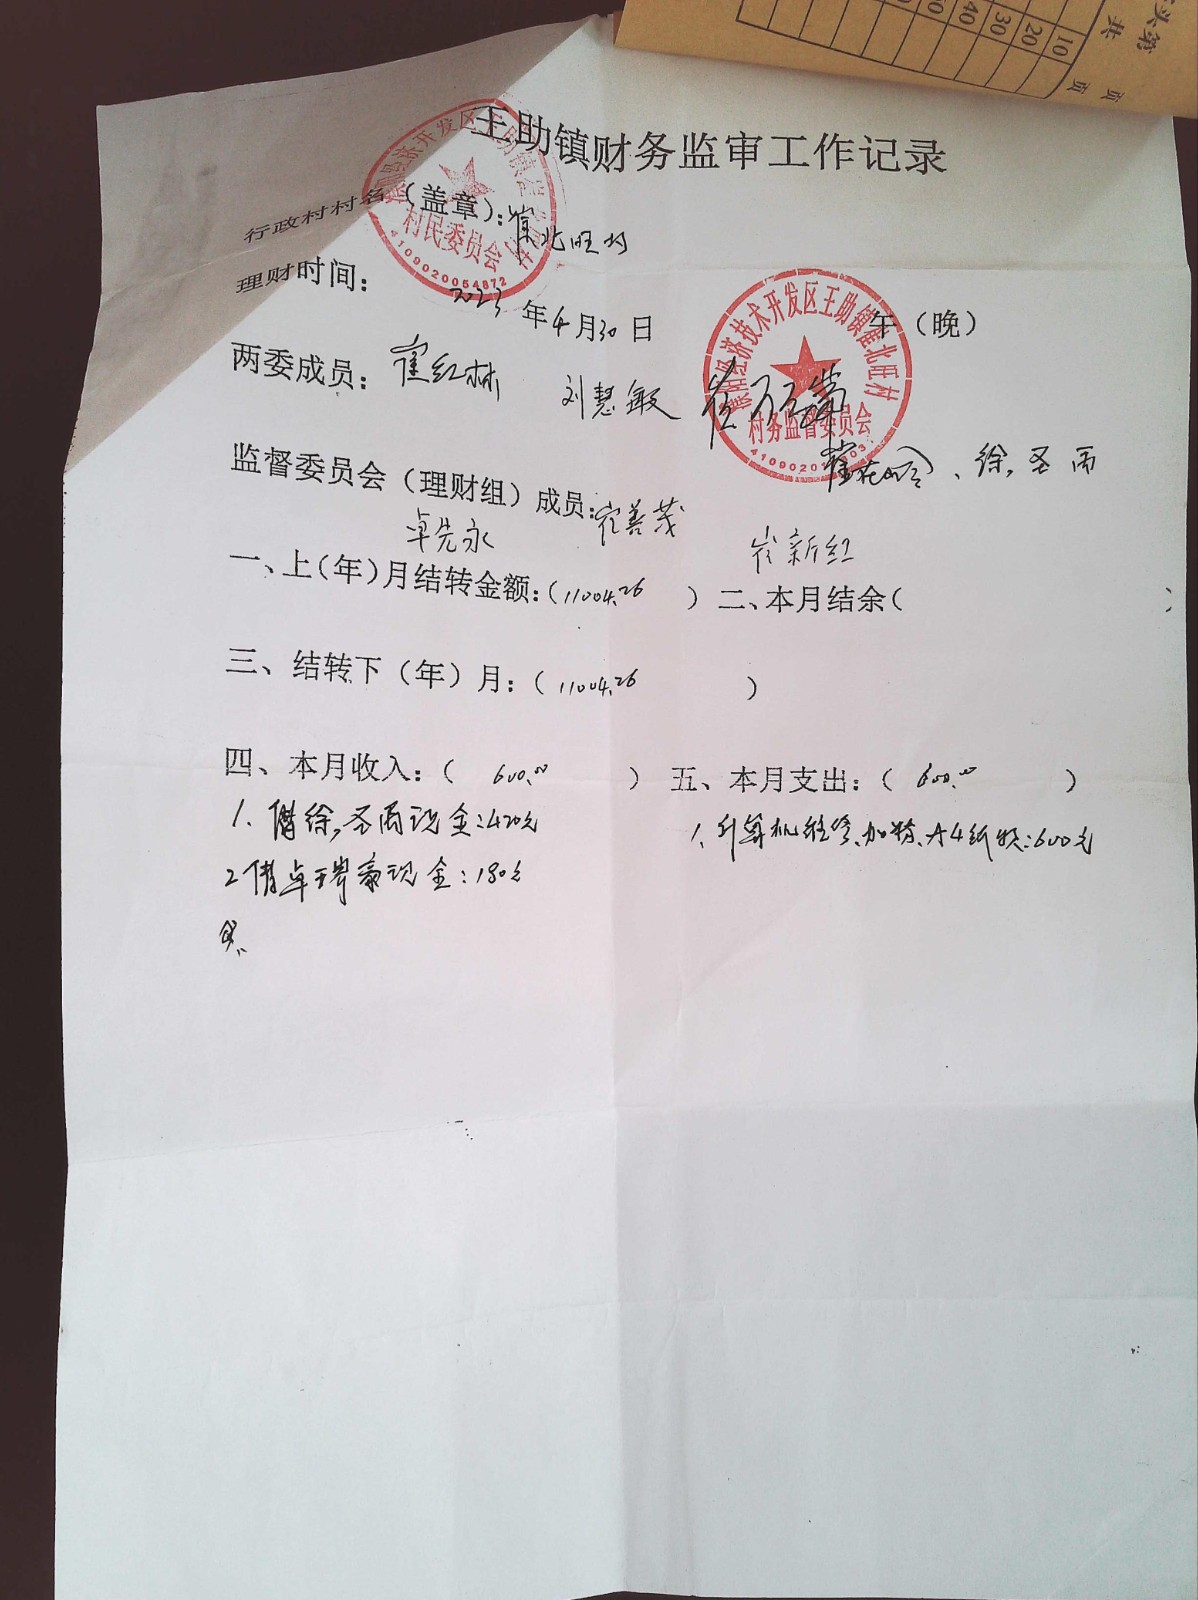 头第 页
共 页
10 20 30 40 50
王助镇财务监审工作记录
行政村村名（盖章）：崔北旺村
村民委员会
4109020054872
理财时间： 2023年4月30日 午（晚）
濮阳经济技术开发区王助镇崔北旺村
村务监督委员会
两委成员：崔红林 刘慧敏
徐圣雨
监督委员会（理财组）成员：崔善茂
卓先永 崔新红
一、上（年）月结转金额：（11004.26 ）二、本月结余（ ）
三、结转下（年）月：（11004.26 ）
四、本月收入：（ 600.00 ） 五、本月支出：（ 600.00 ）
1、借徐圣雨现金：420元 1、计算机维修、加粉、A4纸款：600元
2借卓瑞豪现金：180元